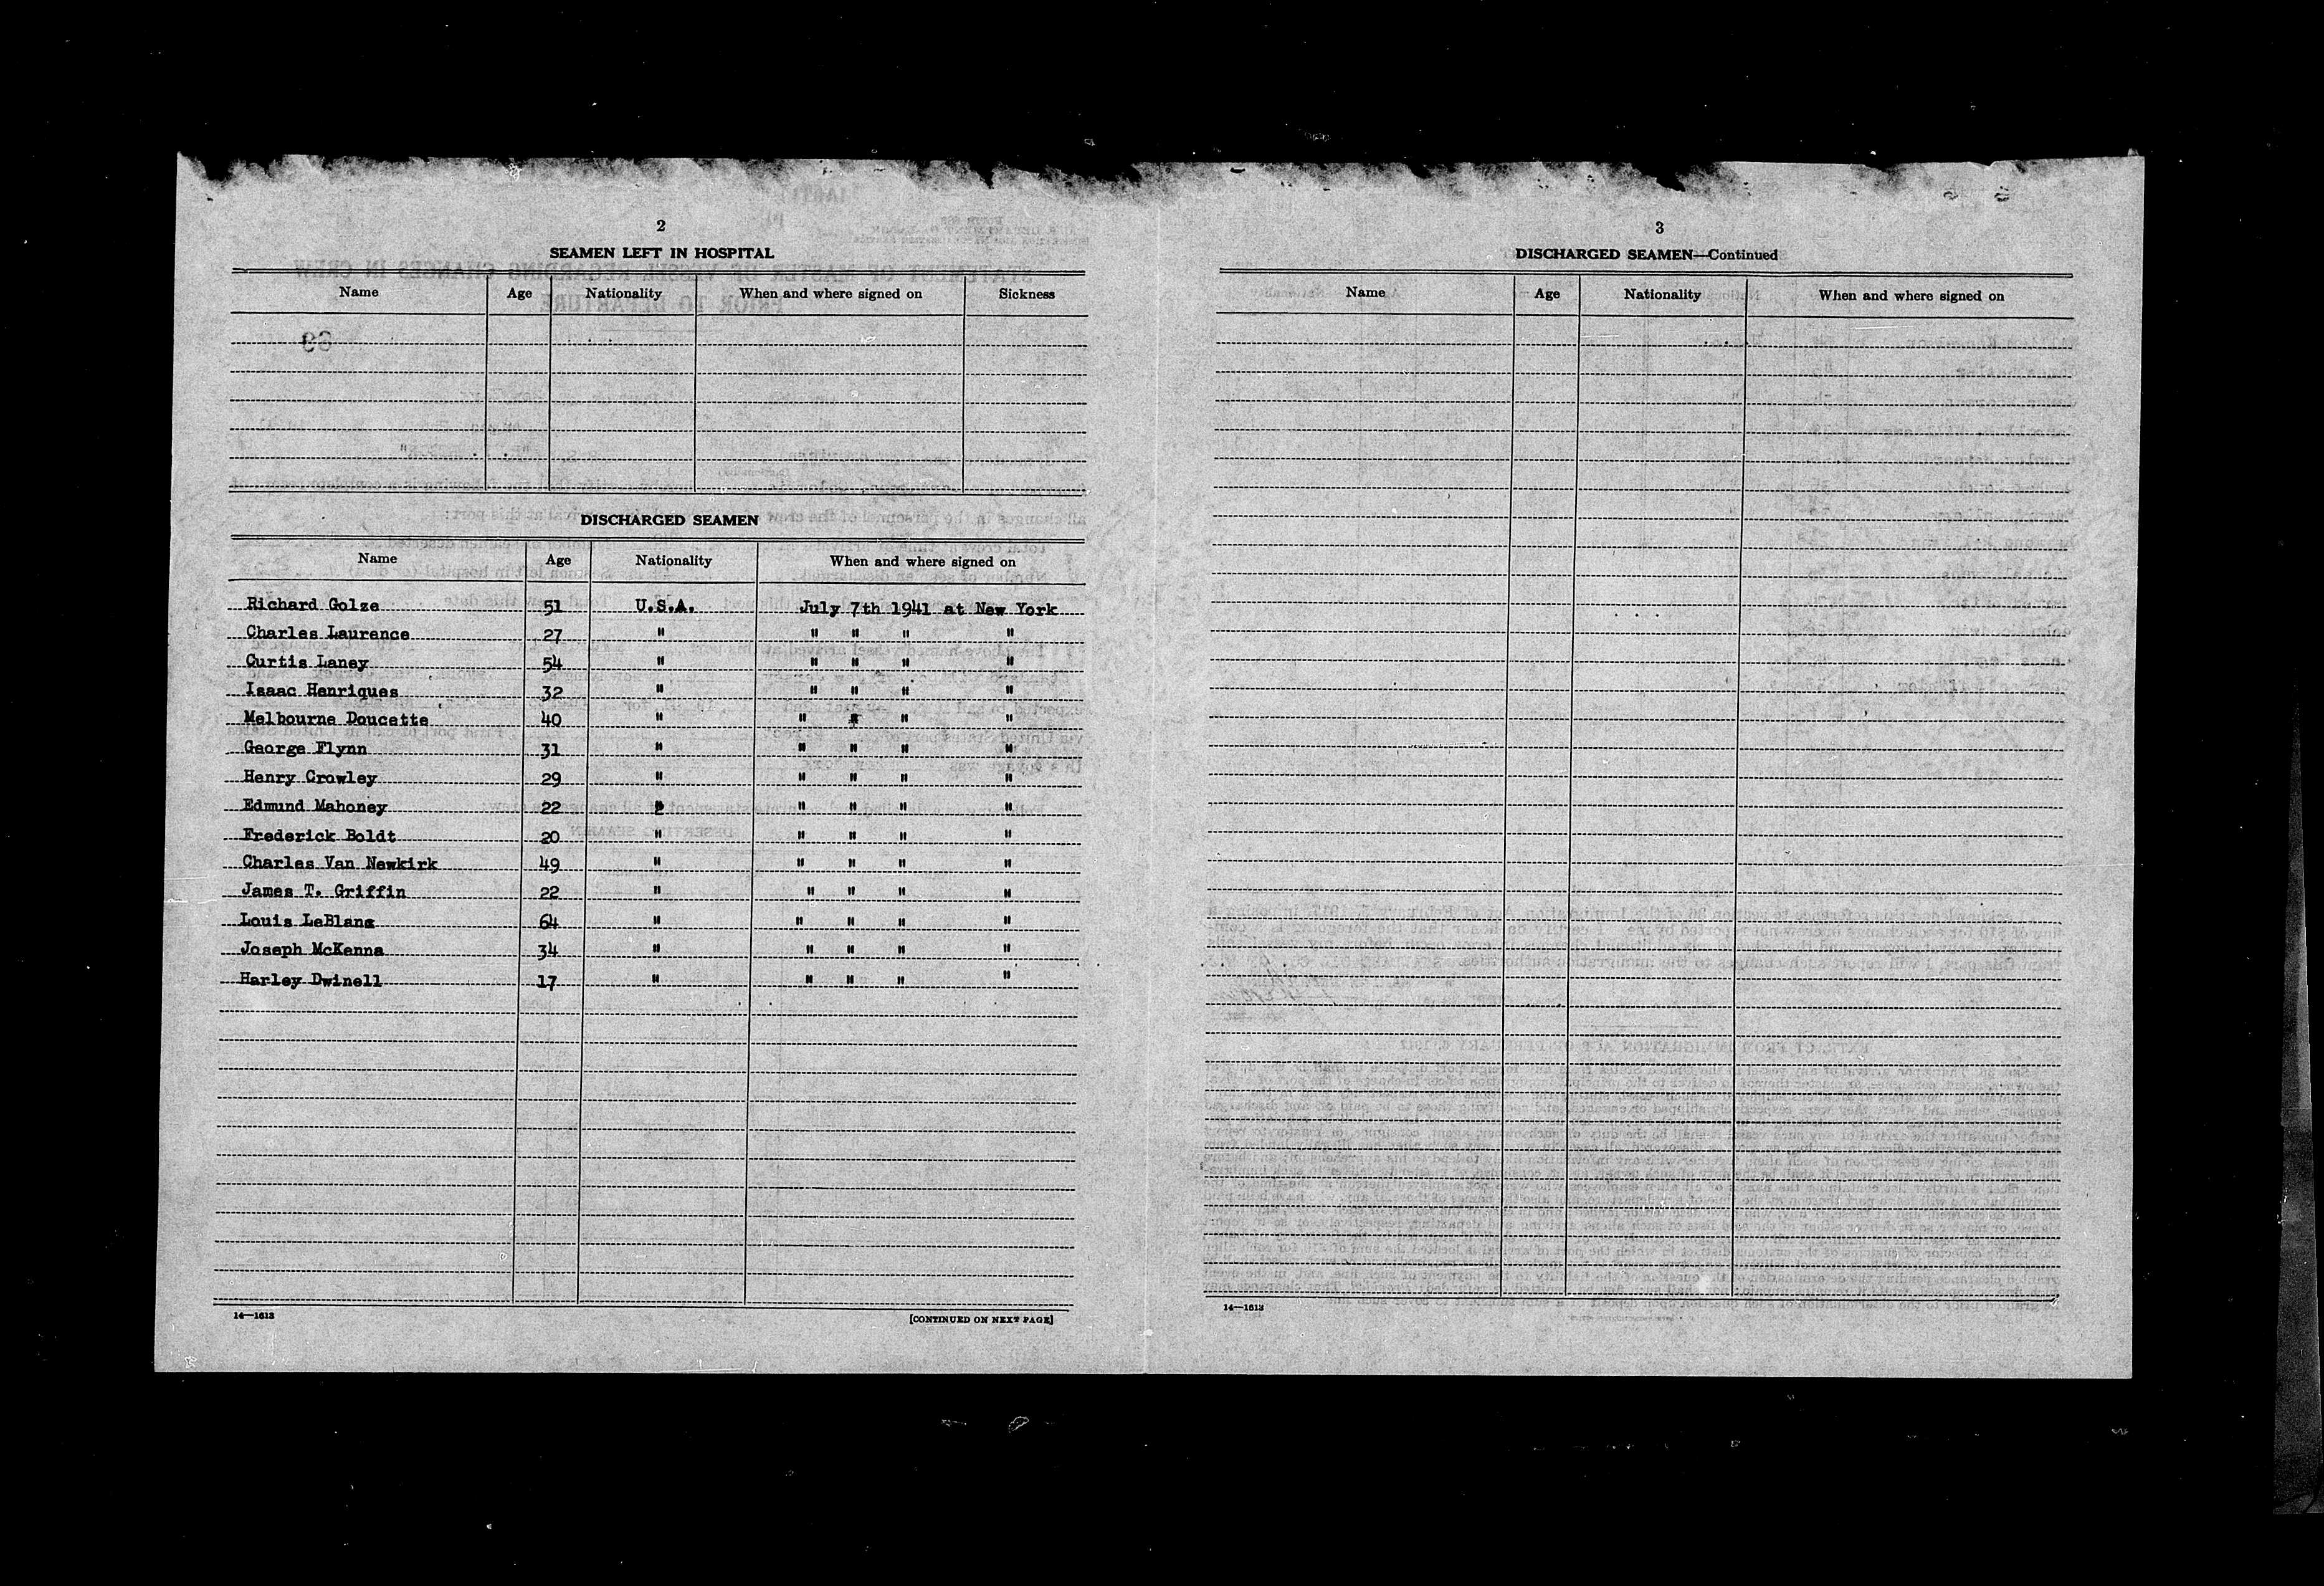 2
SEAMEN LEFT IN HOSPITAL
Name Age Nationality When and where signed on Sickness
DISCHARGED SEAMEN
Name Age Nationality When and where signed on
Richard Golze 51 U.S.A. July 7th 1941 at New York
Charles Laurence 27 " " " " "
Curtis Laney 54 " " " " "
Isaac Henriques 32 " " " " "
Melbourne Doucette 40 " " " " "
George Flynn 31 " " " " "
Henry Crowley 29 " " " " "
Edmund Mahoney 22 " " " " "
Frederick Boldt 20 " " " " "
Charles Van Newkirk 49 " " " " "
James T. Griffin 22 " " " " "
Louis LeBlanc 64 " " " " "
Joseph McKenna 34 " " " " "
Harley Dwinell 17 " " " " "
14—1613
[CONTINUED ON NEXT PAGE]
3
DISCHARGED SEAMEN—Continued
Name Age Nationality When and where signed on
14—1613